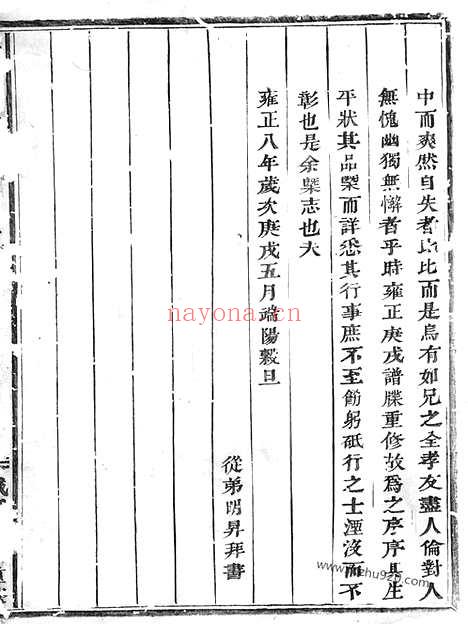 中而爽然自失者比比而是烏有如兄之全孝友盡人倫對人
無愧幽獨無慚者乎時雍正庚戌譜牒重修故為之序序其生
平狀其品槩而詳悉其行事庶不至飭躬砥行之士湮沒而不
彰也是余槩志也夫
雍正八年歲次庚戌五月端陽穀旦
從弟明昇拜書
nayona.cn